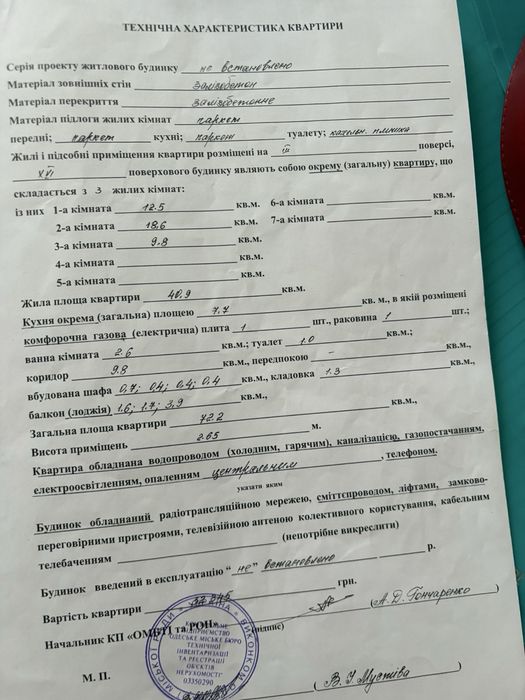 ТЕХНІЧНА ХАРАКТЕРИСТИКА КВАРТИРИ
Серія проекту житлового будинку не встановлено
Матеріал зовнішніх стін Залізобетон
Матеріал перекриття Залізобетонне
Матеріал підлоги жилих кімнат паркет
передні; паркет кухні; паркет туалету; кахельн. плитка
Жилі і підсобні приміщення квартири розміщені на III поверсі,
XVI поверхового будинку являють собою окрему (загальну) квартиру, що
складається з 3 жилих кімнат:
із них 1-а кімната 12.5 кв.м. 6-а кімната кв.м.
2-а кімната 18,6 кв.м. 7-а кімната кв.м.
3-а кімната 9.8 кв.м.
4-а кімната кв.м.
5-а кімната кв.м.
Жила площа квартири 40,9 кв.м.
Кухня окрема (загальна) площею 7,7 кв. м., в якій розміщені
комфорочна газова (електрична) плита 1 шт., раковина 1 шт.;
ванна кімната 2.6 кв.м.; туалет 1.0 кв.м.;
коридор 9.8 кв.м., передпокою – кв.м.,
вбудована шафа 0,7; 0,4; 0,4; 0,4 кв.м., кладовка 1.3 кв.м.,
балкон (лоджія) 1.6; 1.7; 3,9 кв.м.,
Загальна площа квартири 72.2 кв.м.,
Висота приміщень 2.65 м.
Квартира обладнана водопроводом (холодним, гарячим), каналізацією, газопостачанням,
електроосвітленням, опаленням центральним, телефоном.
указати яким
Будинок обладнаний радіотрансляційною мережею, сміттєпроводом, ліфтами, замково-
переговорними пристроями, телевізійною антеною колективного користування, кабельним
телебаченням (непотрібне викреслити)
Будинок введений в експлуатацію “ не” встановлено р.
Вартість квартири грн.
Начальник КП «ОМБТІ та РОН» (підпис) (А. Д. Гончаренко)
ПІДПРИЄМСТВО
ОДЕСЬКЕ МІСЬКЕ БЮРО
ТЕХНІЧНОЇ
ІНВЕНТАРИЗАЦІЇ
ТА РЕЄСТРАЦІЇ
ОБ'ЄКТІВ
НЕРУХОМОСТІ"
03350290
М. П.